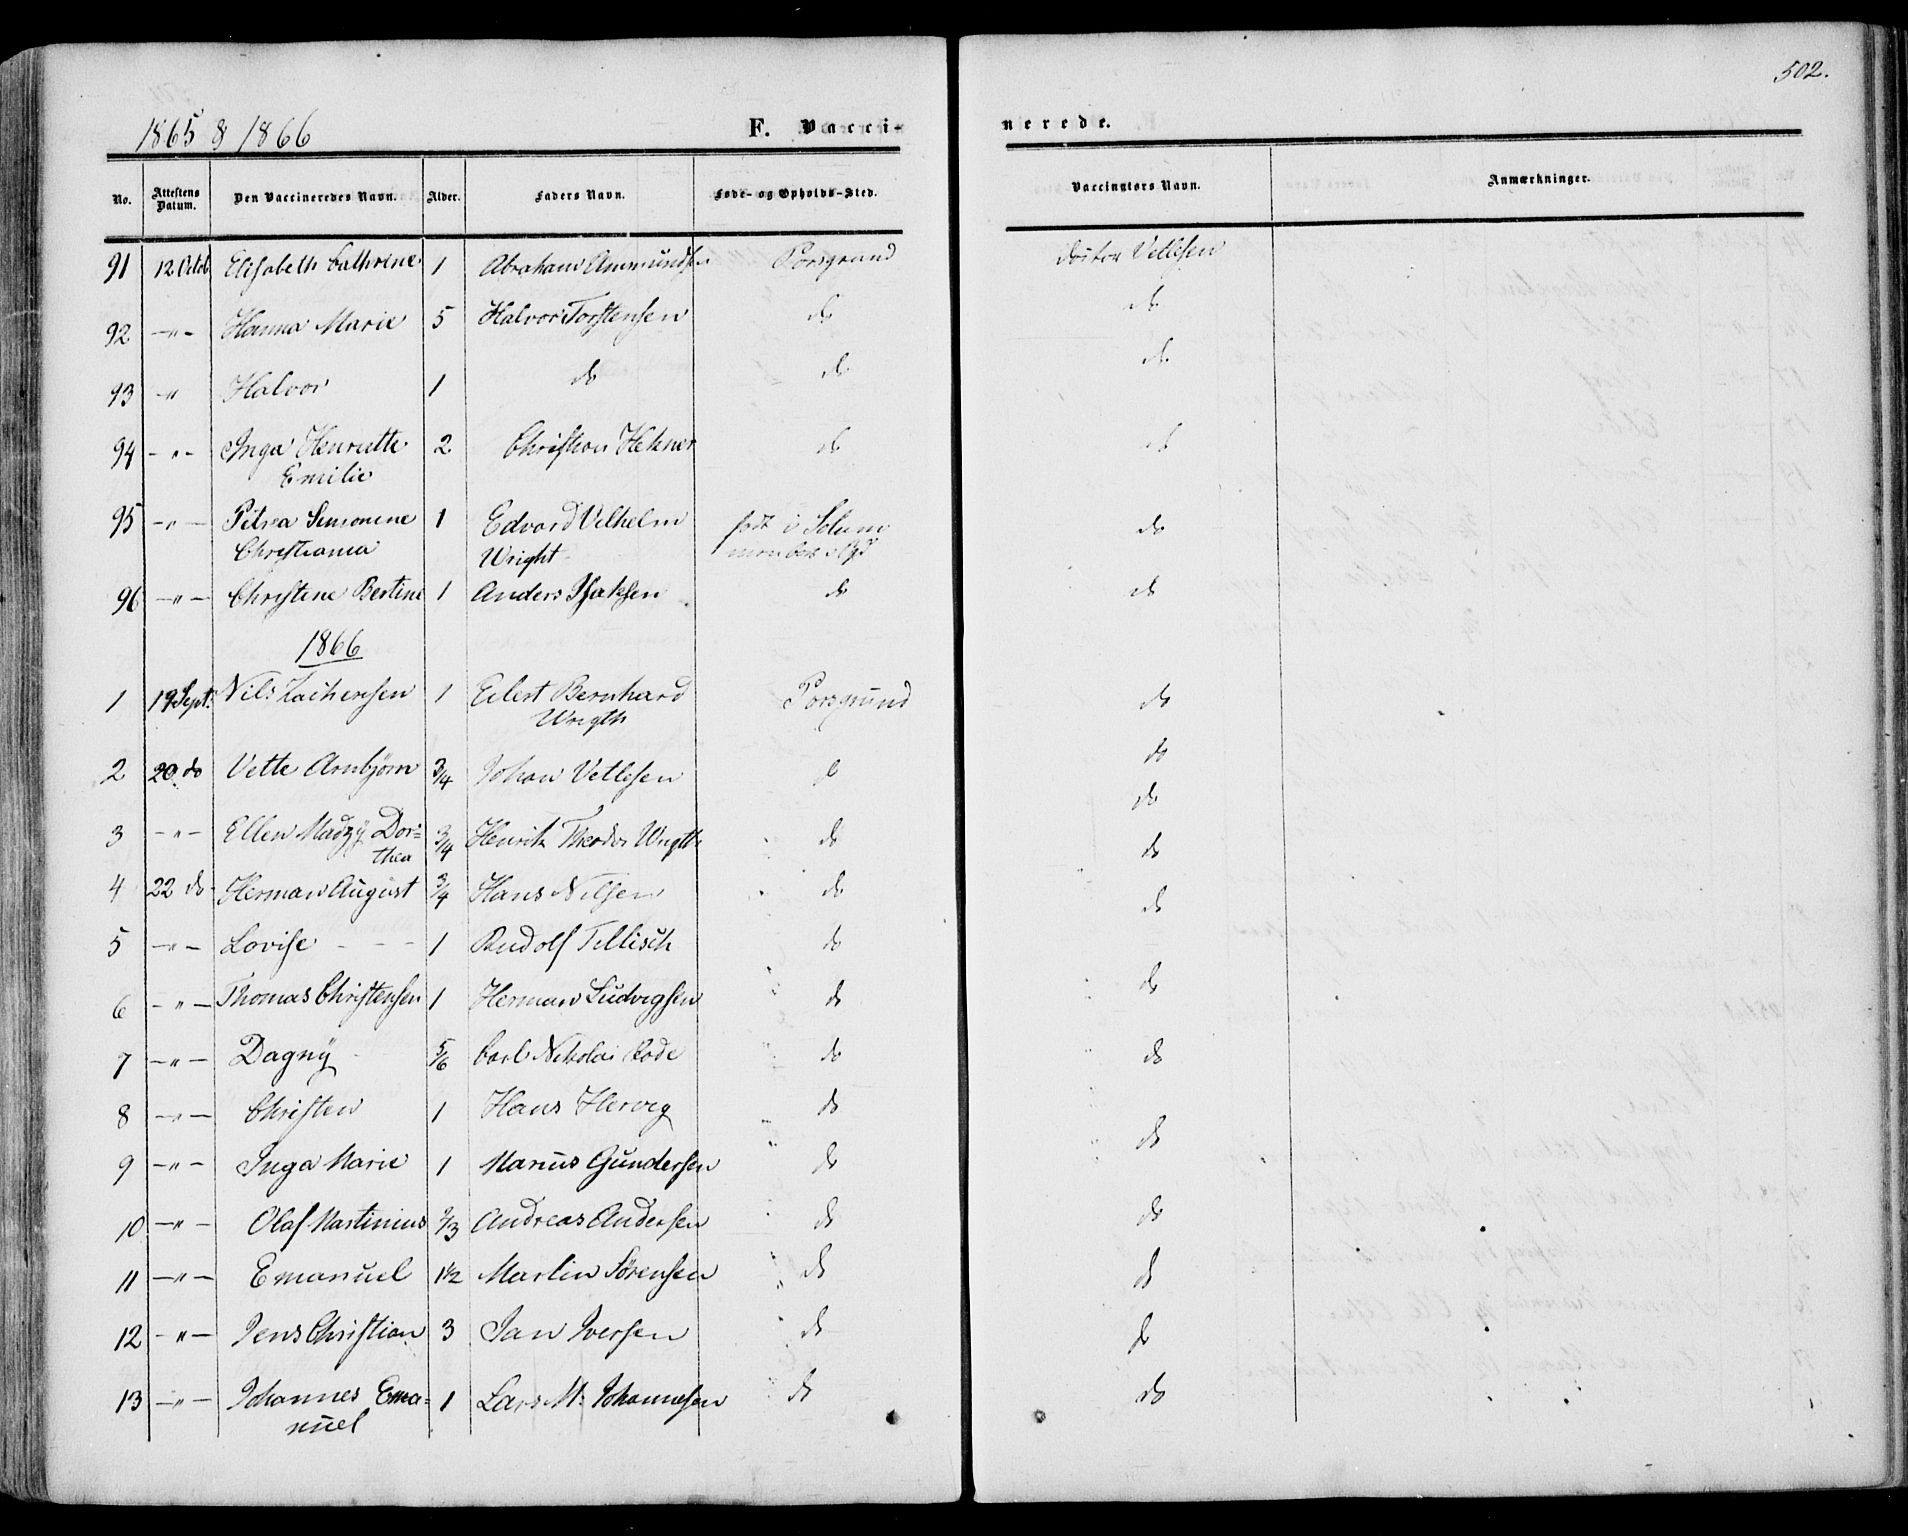 502.
1865 & 1866 F. Vaccinerede.
No. Attestens Datum. Den Vaccineredes Navn. Alder. Faders Navn. Føde- og Opholds-Sted. Vaccinatørs Navn. Anmærkninger.
91 12 Octob Elisabeth Cathrine 1 Abraham Ammundsen Porsgrund doctor Vetlesen
92 —〃— Hanna Marie 5 Halvor Torstensen do do
93 〃 Halvor 1 do do do
94 -〃- Inga Henriette 2 Christian do do
Emilie
95 -〃- Petrea Simonine 1 Edvard Vilhelm født i Solum do
Christiania Wright
96 —〃— Christine Bertine 1 Anders Isaksen do do
1866
1 19 Sept: Nils 1 Eilert Bernhard Porsgrund do
Wrigth
2 20 do Vette Arnbjørn 3/4 Johan Vetlesen do do
3 -〃- Ellen Madzy Dor= 3/4 Henrik Theodor Wrigth do do
thea
4 22 do Herman August 3/4 Hans Nilsen do do
5 —〃— Lovise - - - 1 Rudolf Tellisch do do
6 —〃— Thomas Christensen 1 Herman Ludvigsen do do
7 —〃— Dagny 5/6 Carl Nikolai Rode do do
8 —〃— Christen 1 Hans Hervig do do
9 —〃— Inga Marie 1 Marius Gundersen do do
10 —〃— Olaf Martinius 2/3 Andreas Andersen do do
11 —〃— Emanuel 1 1/2 Martin Sørensen do do
12 -〃— Jens Christian 3 Jan Iversen do do
13 —〃— Johannes Ema= 1 Lars M: Johannesen do do
nuel